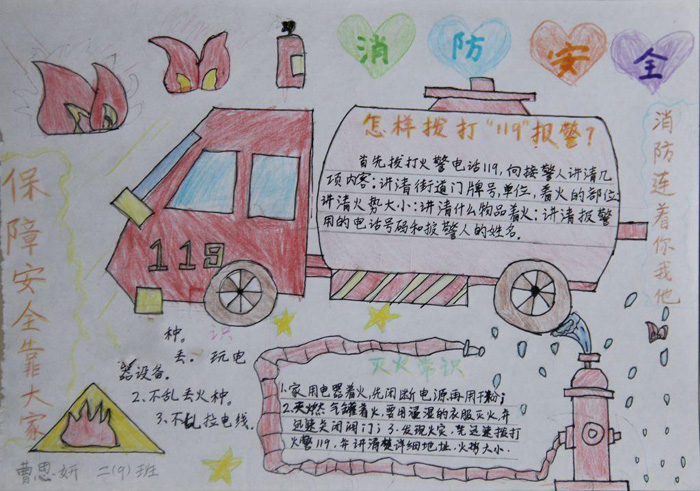 消防安全
怎样拨打“119”报警？
首先拨打火警电话119，向接警人讲清几
项内容：讲清街道门牌号，单位，着火的部位
讲清火势大小：讲清什么物品着火；讲清报警
用的电话号码和报警人的姓名。
消防连着你我他
保障安全靠大家
119
种。 识
丢。玩电
器设备。
2、不乱丢火种。
3、不乱拉电线。
灭火常识
1、家用电器着火，先闭断电源再用干粉；
2、天燃气罐着火，要用逼湿的衣服灭火，并
迅速关闭阀门；3、发现火灾，先迅速拨打
火警119，并讲清楚详细地址，火势大小。
曹思妍 二（9）班